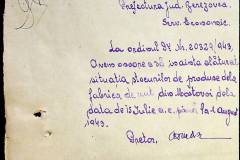 Prefectura Jud. Berezovca
Serv. Economic.
La ordinul Dv. Nr. 20329/943.
Avem onoare a vă înainta alăturat
situația stocurilor de produse dela
fabrica de unt din Mostovoi dela
data de 15 Iulie a.c. până la 1 August
1943.
Pretor,